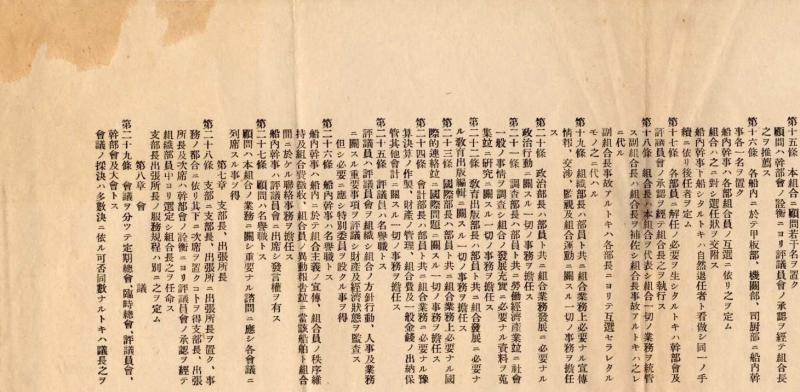 第十五條　本組合ニ顧問若干名ヲ置ク
顧問ハ幹部會ノ詮衡ニヨリ評議員會ノ承認ヲ經テ組合長
之ヲ推薦ス
第十六條　各船内ニ於テ甲板部、機關部、司厨部ニ船内幹
事各一名ヲ置ク
船内幹事ハ各部組合員ノ互選ニ依リ之ヲ定ム
組合ハ之ニ對シ選任狀ヲ交附ス
船内幹事下船シタルトキハ自然退任者ト看做シ同一ノ手
續ニ依リ後任者ヲ定ム
第十七條　各部員ノ解任ノ必要ヲ生シタルトキハ幹部會及
評議員會ノ承認ヲ經テ組合長之ヲ執行ス
第十八條　組合長ハ本組合ヲ代表シ組合一切ノ業務ヲ統管
ス副組合長ハ組合長ヲ補佐シ組合長事故アルトキハ之レ
ニ代ル
副組合長事故アルトキハ各部長ニヨリテ互選セラレタル
モノ之ニ代ハル
第十九條　組織部長ハ部員ト共ニ組合業務上必要ナル宣傳
情報、交渉、監視及組合運動ニ關スル一切ノ事務ヲ擔任
ス
第二十條　政治部長ハ部員ト共ニ組合業務發展ニ必要ナル
政治行動ニ關スル一切ノ事務ヲ擔任ス
第二十一條　調査部長ハ部員ト共ニ勞働經濟產業竝ニ社會
一般ノ事情ヲ調査シ組合ノ發展充實ニ必要ナル資料ヲ蒐
集竝ニ研究ニ關スル一切ノ事務ヲ擔任ス
第二十二條　敎育出版部長ハ部員ト共ニ組合發展ニ必要ナ
ル敎育出版編輯ニ關スル一切ノ事務ヲ擔任ス
第二十三條　國際部長ハ部員ト共ニ組合業務上必要ナル國
際的連絡竝ニ國際問題ニ關スル一切ノ事務ヲ擔任ス
第二十四條　會計部長ハ部員ト共ニ組合業務ニ必要ナル豫
算決算ノ作製、財產ノ管理、組合費及一般金錢ノ出納保
管其他會計ニ關スル一切ノ事務ヲ擔任ス
第二十五條　評議員ハ名譽職トス
評議員ハ評議員會ヲ組織シ組合ノ方針行動、人事及業務
ニ關スル重要事項ヲ評議シ財產及經濟狀態ヲ監査ス
但シ必要ニ應シ特別委員ヲ設クル事ヲ得
第二十六條　船内幹事ハ名譽職トス
船内幹事ハ船内ニ於テ組合主義ノ宣傳、組合員ノ秩序維
持及組合費徵收、組合員ノ異動報告竝ニ當該船舶ト組合
間ニ於ケル聯絡事務ヲ擔任ス
船内幹事ハ評議員會ニ出席シ發言權ヲ有ス
第二十七條　顧問ハ名譽職トス
顧問ハ本組合業務ノ關シ重要ナル諮問ニ應シ各會議ニ
列席スル事ヲ得
第七章　支部長、出張所長
第二十八條　支部ニ支部長、出張所ニ出張所長ヲ置ク、事
務ノ都合ニ依リテハ次席ヲ置クコトヲ得支部長、出張
所長及次席ハ幹部會ノ詮衡ニヨリ評議員會ノ承認ヲ經テ
組織部員中ヨリ選定シ組合長之ヲ任命ス
支部長出張所長ノ服務規程ハ別ニ之ヲ定ム
第八章　會　議
第二十九條　會議ヲ分ツテ定期總會、臨時總會、評議員會、
幹部會及大會トス
會議ノ採決ハ多數決ニ依ル可否同數ナルトキハ議長之ヲ